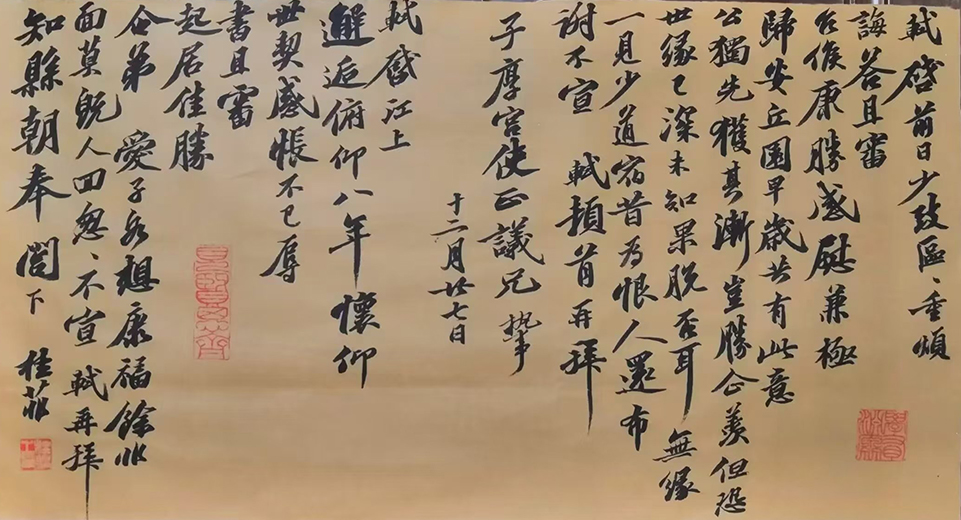 軾啓前日少致區、重煩
誨答且審
台候康勝感慰兼極
歸安丘園早歲共有此意
公獨先獲其漸豈勝企羨但恐
世緣已深未知果脫否耳無緣
一見少道宿昔為恨人還布
謝不宣 軾頓首再拜
子厚宮使正議兄 執事
十二月廿七日
軾啓江上
邂逅俯仰八年懷仰
世契感悵不已辱
書且審
起居佳勝
令弟 愛子各想康福餘非
面莫既人回怱、不宣 軾再拜
知縣朝奉閣下 桂菲